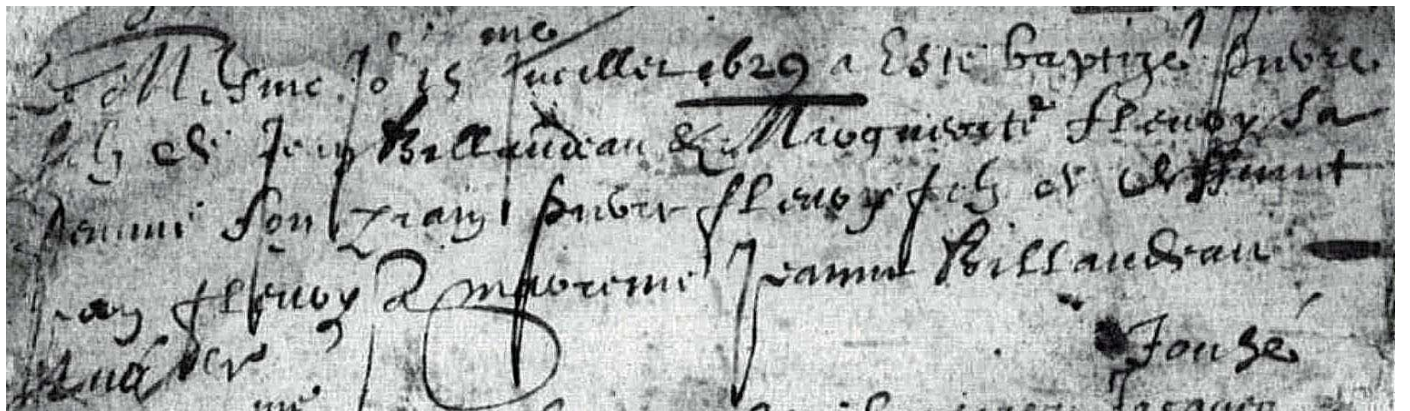 Le Mesme Jo 15me Jueillet 1629 a Esté baptizé pierre
filz de Jean Billaudeau & Marguerite fleury Sa
femme Son parain pierre fleury filz de deffunt
Jean fleury & mareine Jeanne Billaudeau
Jousé